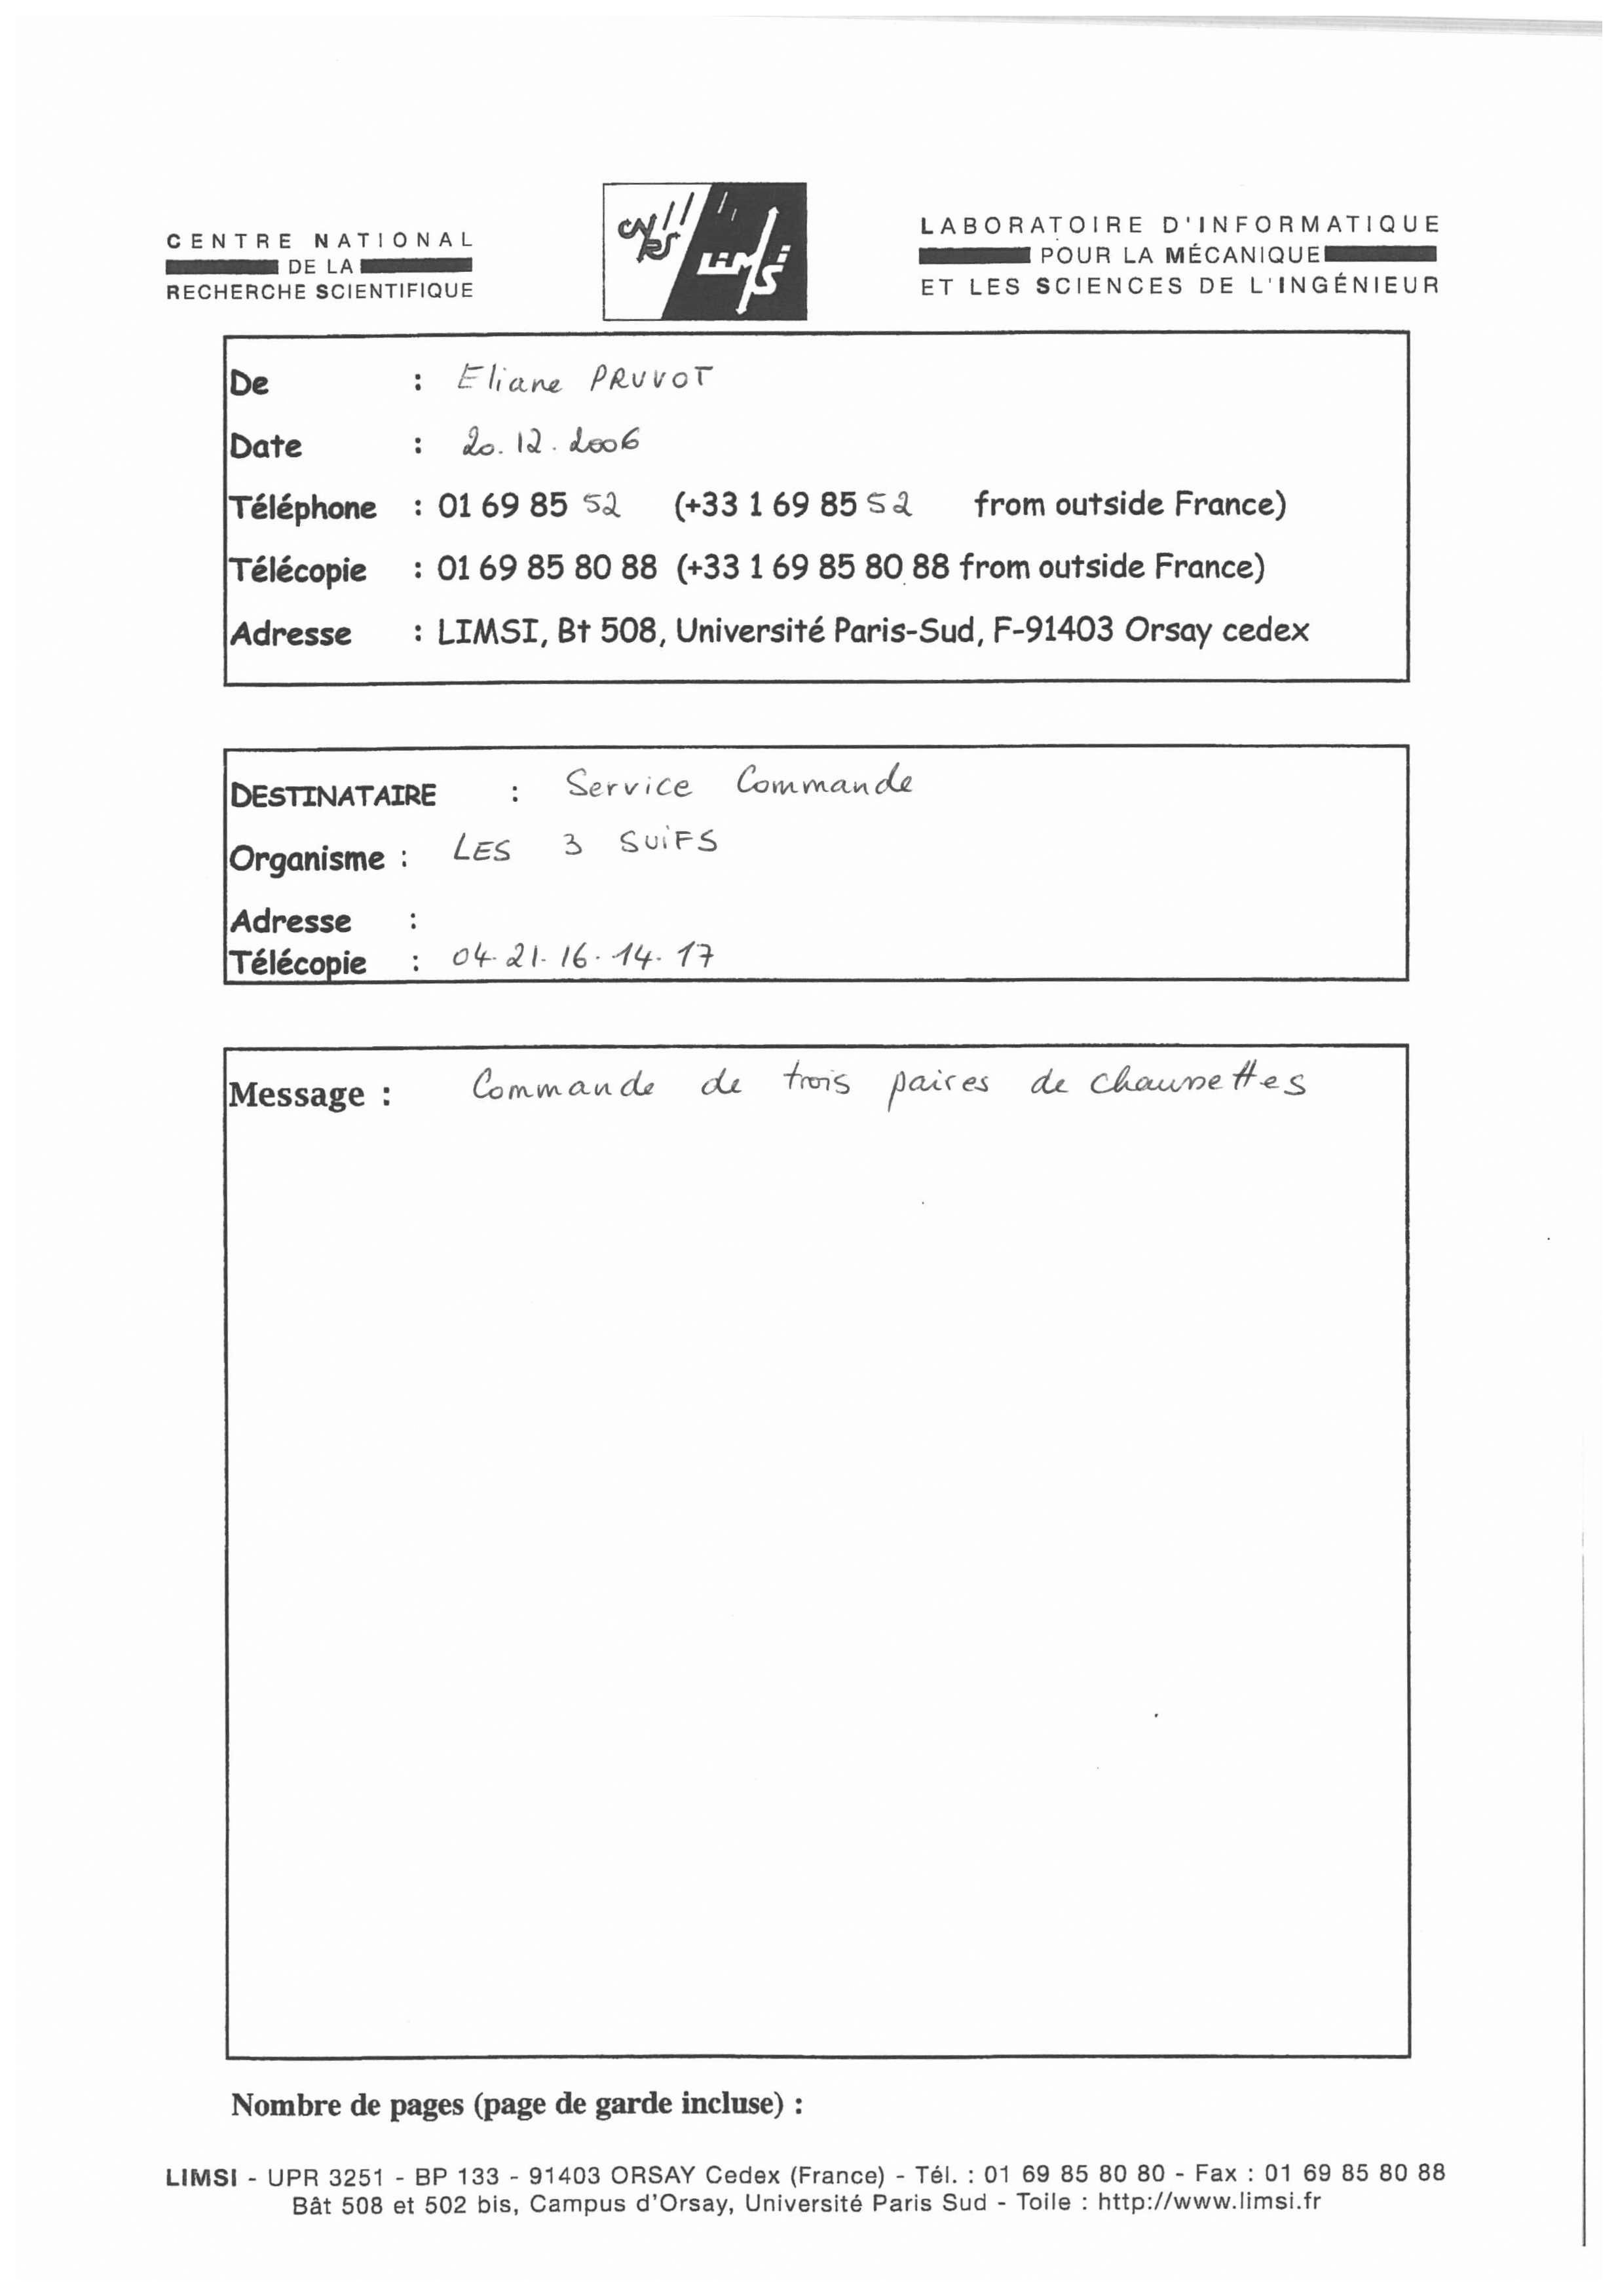 CENTRE NATIONAL
DE LA
RECHERCHE SCIENTIFIQUE
CNRS
LIMSI
LABORATOIRE D'INFORMATIQUE
POUR LA MÉCANIQUE
ET LES SCIENCES DE L'INGÉNIEUR
De : Eliane PRUVOT
Date : 20.12.2006
Téléphone : 01 69 85 52 (+33 1 69 85 52 from outside France)
Télécopie : 01 69 85 80 88 (+33 1 69 85 80 88 from outside France)
Adresse : LIMSI, Bt 508, Université Paris-Sud, F-91403 Orsay cedex
DESTINATAIRE : Service Commande
Organisme : LES 3 SUiFS
Adresse :
Télécopie : 04.21.16.14.17
Message : Commande de trois paires de chaussettes
Nombre de pages (page de garde incluse) :
LIMSI - UPR 3251 - BP 133 - 91403 ORSAY Cedex (France) - Tél. : 01 69 85 80 80 - Fax : 01 69 85 80 88
Bât 508 et 502 bis, Campus d'Orsay, Université Paris Sud - Toile : http://www.limsi.fr